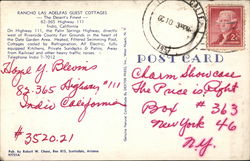 RANCHO LAS ADELFAS GUEST COTTAGES
— The Desert's Finest —
82-365 Highway 111
Indio, California
On Highway 111, the Palm Springs Highway, directly
west of Riverside County Fair Grounds in the heart of
the Date Garden Area. Heated, Filtered Swimming Pool.
Cottages cooled by Refrigeration. All Electric, fully-
equipped Kitchens. Private Sundecks & Patios. Away
from Railroad and other heavy traffic noises.
Telephone Indio 7-1012
POST CARD
Charm Showcase
The Price is Right
Box # 363
New York 46
N.Y.
82-365 Highway #111
Indio California
# 352021
Pub. by Robert W. Chase, Box 815, Scottsdale, Arizona